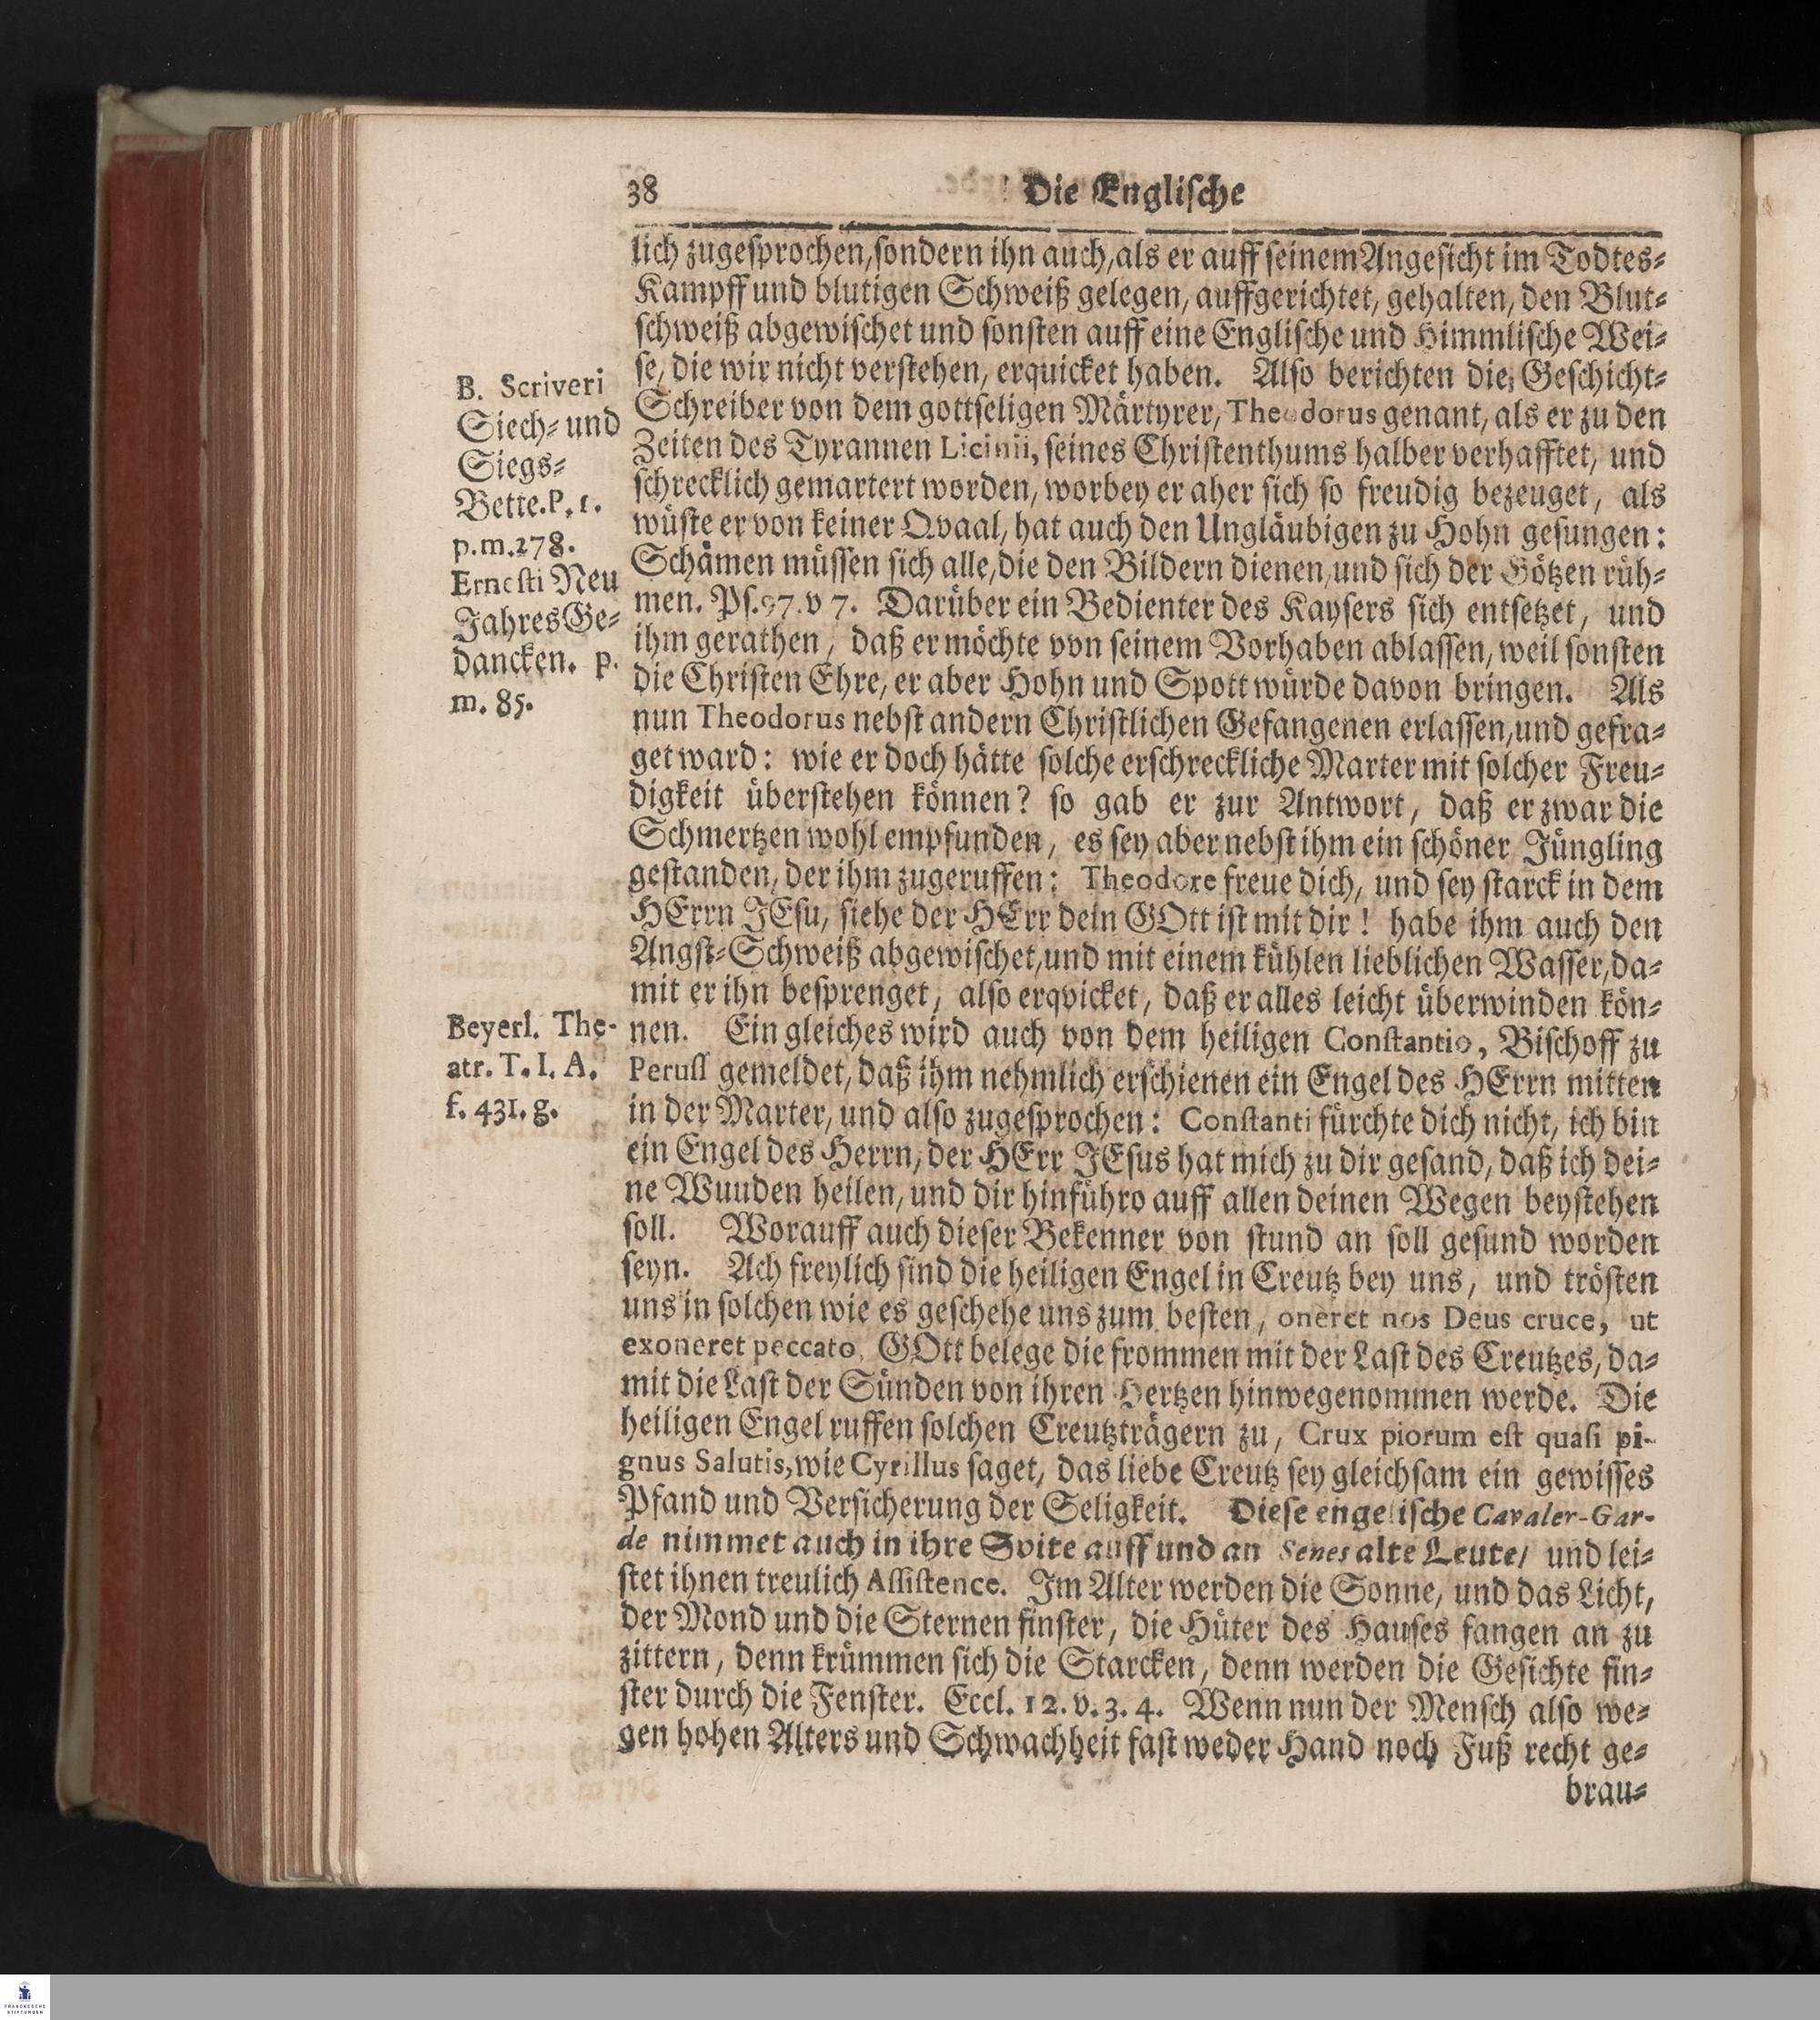 38 Die Englische
lich zugesprochen, sondern ihn auch, als er auff seinem Angesicht im Todtes-
Kampff und blutigen Schweiß gelegen, auffgerichtet, gehalten, den Blut-
schweiß abgewischet und sonsten auff eine Englische und Himmlische Wei-
se, die wir nicht verstehen, erquicket haben. Also berichten die Geschicht-
Schreiber von dem gottseligen Märtyrer, Theodorus genant, als er zu den
Zeiten des Tyrannen Licinii, seines Christenthums halber verhafftet, und
schrecklich gemartert worden, worbey er aher sich so freudig bezeuget, als
wüste er von keiner Qvaal, hat auch den Ungläubigen zu Hohn gesungen:
Schämen müssen sich alle, die den Bildern dienen, und sich der Götzen rüh-
men. Ps. 97. v 7. Darüber ein Bedienter des Kaysers sich entsetzet, und
ihm gerathen, daß er möchte von seinem Vorhaben ablassen, weil sonsten
die Christen Ehre, er aber Hohn und Spott würde davon bringen. Als
nun Theodorus nebst andern Christlichen Gefangenen erlassen, und gefra-
get ward: wie er doch hätte solche erschreckliche Marter mit solcher Freu-
digkeit überstehen können? so gab er zur Antwort, daß er zwar die
Schmertzen wohl empfunden, es sey aber nebst ihm ein schöner Jüngling
gestanden, der ihm zugeruffen: Theodore freue dich, und sey starck in dem
HErrn JEsu, siehe der HErr dein GOtt ist mit dir! habe ihm auch den
Angst-Schweiß abgewischet, und mit einem kühlen lieblichen Wasser, da-
mit er ihn besprenget, also erqvicket, daß er alles leicht überwinden kön-
nen. Ein gleiches wird auch von dem heiligen Constantio, Bischoff zu
Peruss gemeldet, daß ihm nehmlich erschienen ein Engel des HErrn mitten
in der Marter, und also zugesprochen: Constanti fürchte dich nicht, ich bin
ein Engel des Herrn, der HErr JEsus hat mich zu dir gesand, daß ich dei-
ne Wuuden heilen, und dir hinführo auff allen deinen Wegen beystehen
soll. Worauff auch dieser Bekenner von stund an soll gesund worden
seyn. Ach freylich sind die heiligen Engel in Creutz bey uns, und trösten
uns in solchen wie es geschehe uns zum besten, oneret nos Deus cruce, ut
exoneret peccato, GOtt belege die frommen mit der Last des Creutzes, da-
mit die Last der Sünden von ihren Hertzen hinwegenommen werde. Die
heiligen Engel ruffen solchen Creutzträgern zu, Crux piorum est quasi pi-
gnus Salutis, wie Cyrillus saget, das liebe Creutz sey gleichsam ein gewisses
Pfand und Versicherung der Seligkeit. Diese engelische Cavaler-Gar-
de nimmet auch in ihre Svite auff und an Senes alte Leute/ und lei-
stet ihnen treulich Assistence. Im Alter werden die Sonne, und das Licht,
der Mond und die Sternen finster, die Hüter des Hauses fangen an zu
zittern, denn krümmen sich die Starcken, denn werden die Gesichte fin-
ster durch die Fenster. Eccl. 12. v. 3. 4. Wenn nun der Mensch also we-
gen hohen Alters und Schwachheit fast weder Hand noch Fuß recht ge-
brau-
B. Scriveri
Siech- und
Siegs-
Bette. P. 1.
p. m. 278.
Ernesti Neu
Jahres Ge-
dancken. p.
m. 85.
Beyerl. The-
atr. T. I. A.
f. 431. g.
FRANCKESCHE
STIFTUNGEN